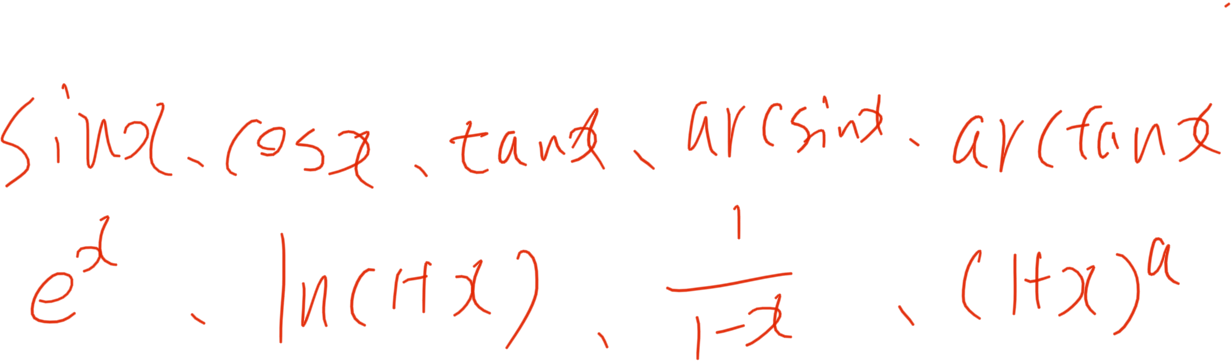 sinx、cosx、tanx、arcsinx、arctanx
e^x、ln(1+x)、1/(1-x)、(1+x)^a